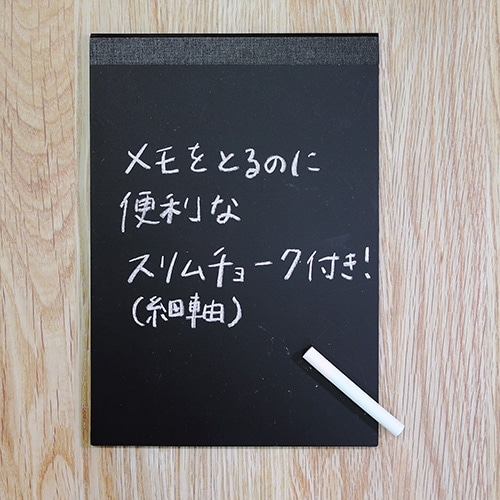 メモをとるのに
便利な
スリムチョーク付き!
(細軸)